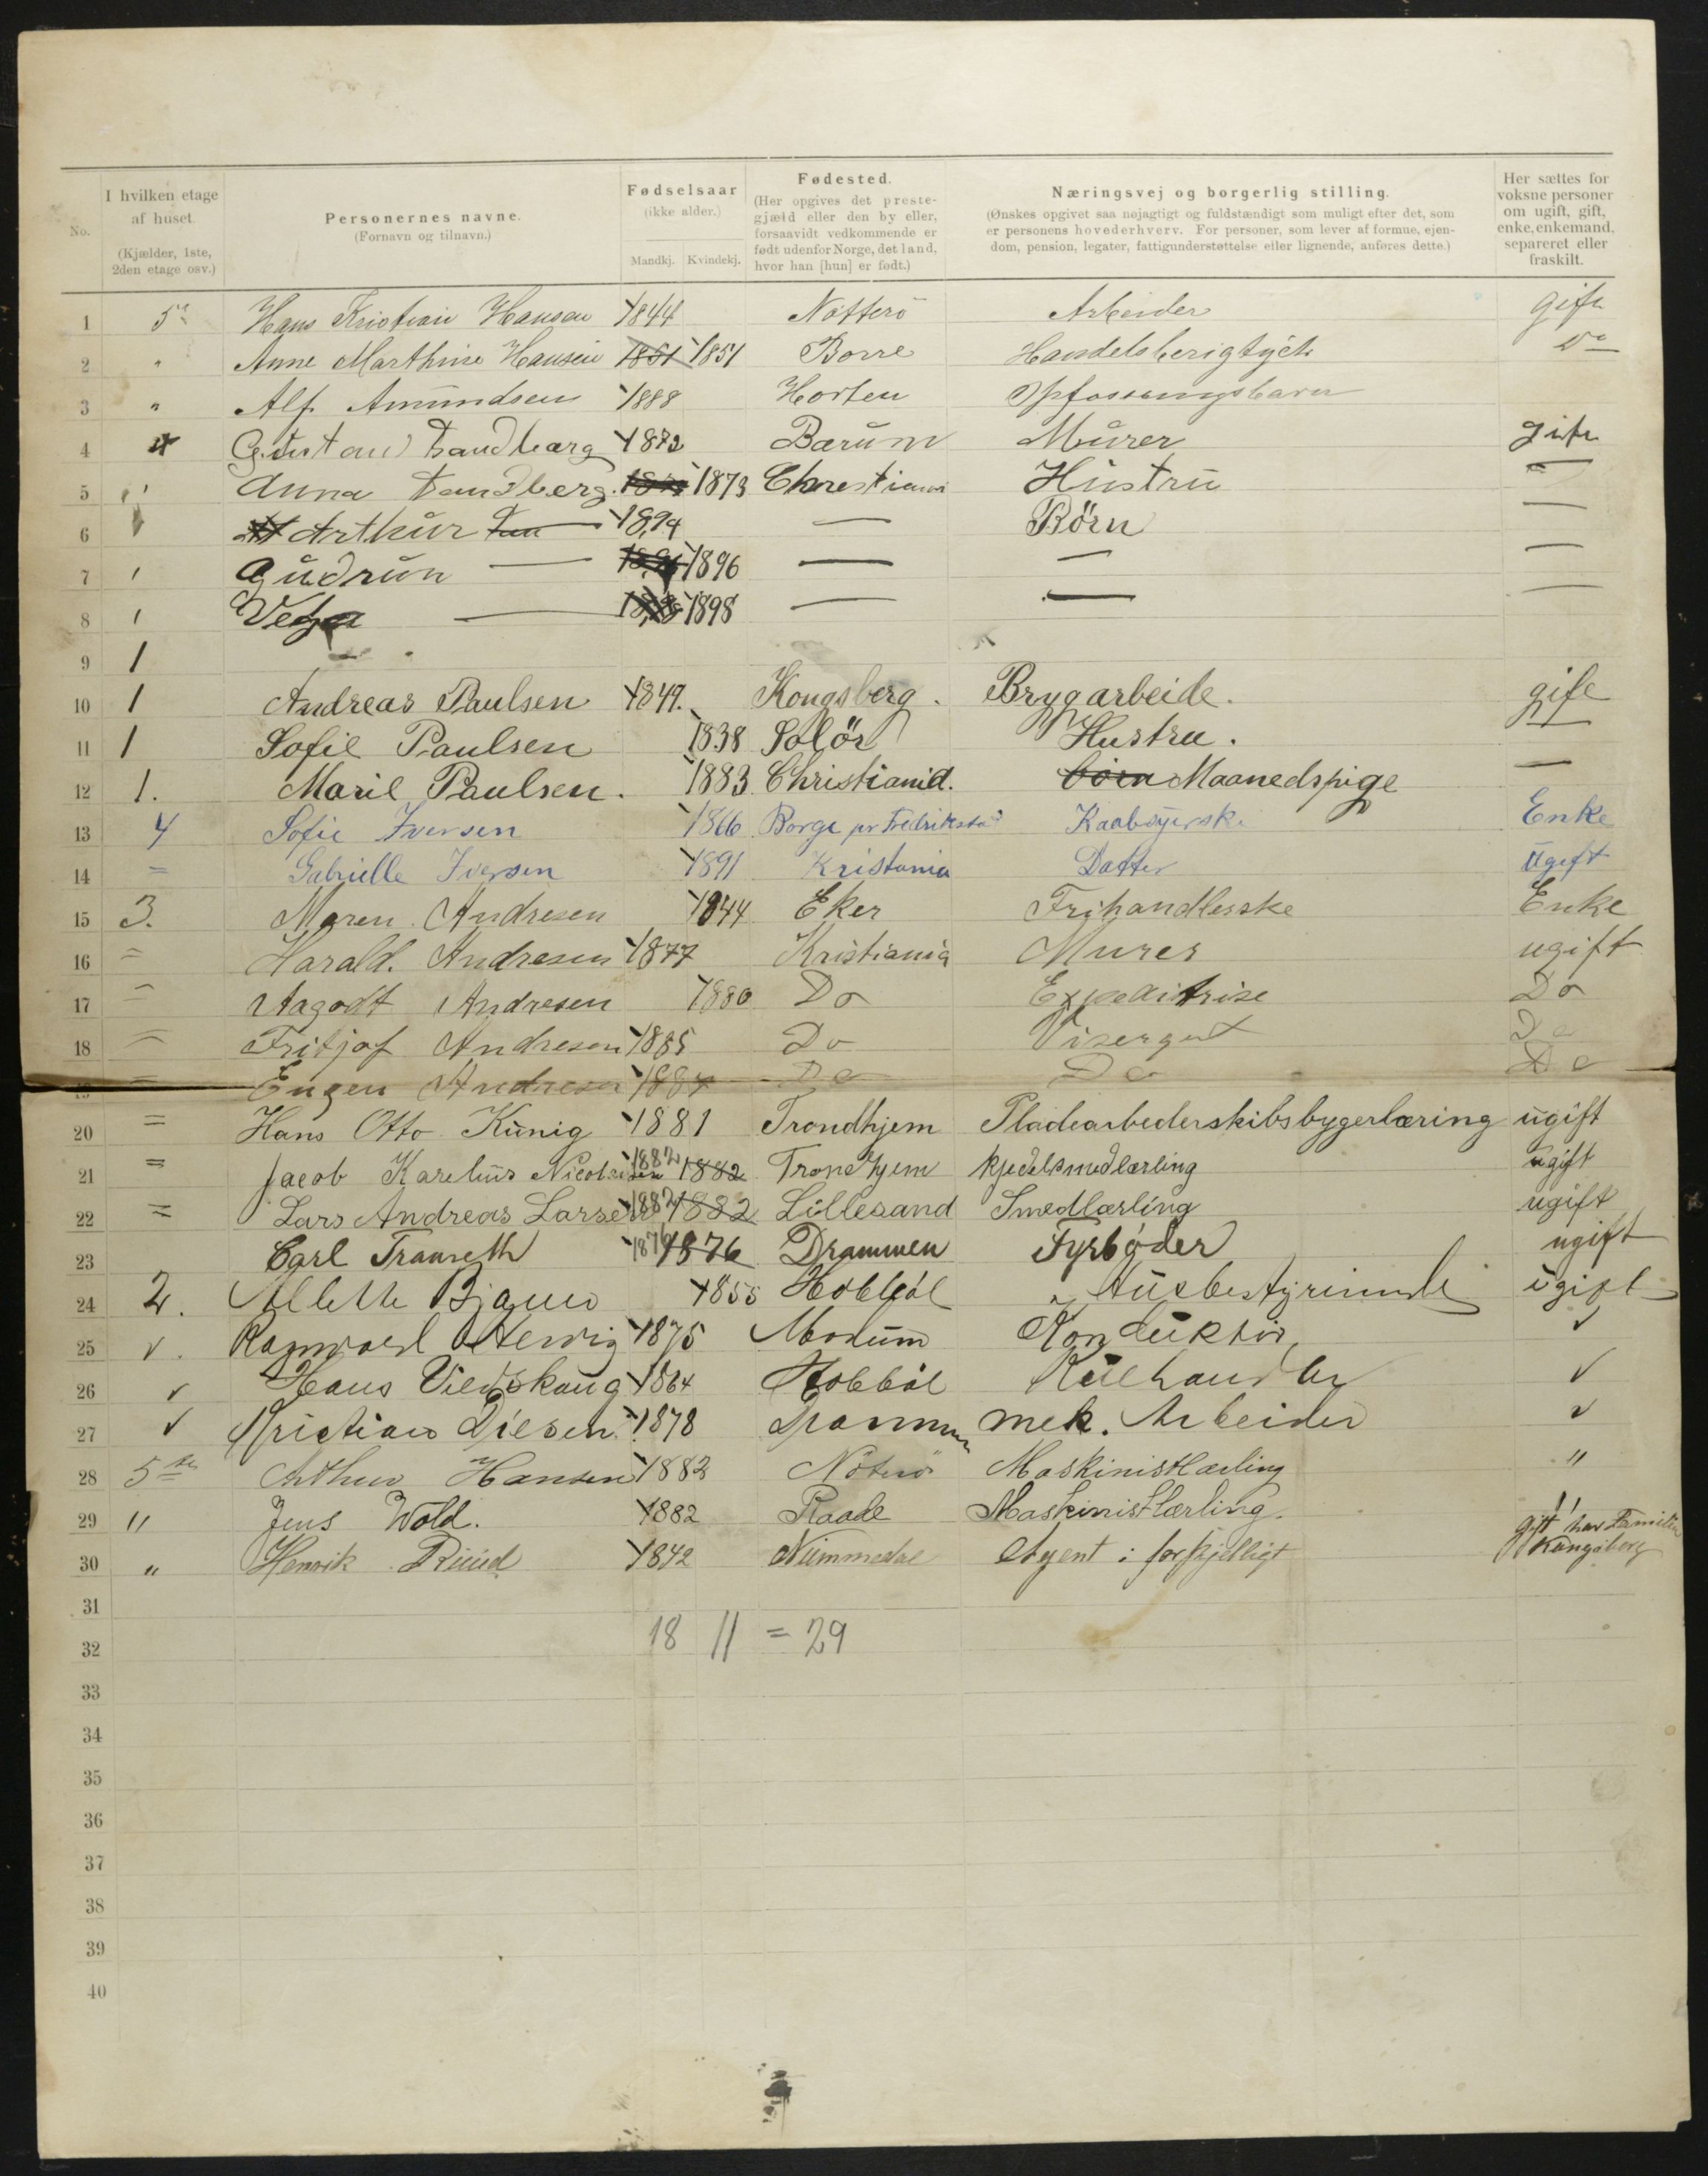 No. I hvilken etage af huset. (Kjælder, 1ste, 2den etage osv.) Personernes navne. (Fornavn og tilnavn.) Fødselsaar (ikke alder.) Mandkj. Kvindekj. Fødested. (Her opgives det prestegjæld eller den by eller, forsaavidt vedkommende er født udenfor Norge, det land, hvor han [hun] er født.) Næringsvej og borgerlig stilling. (Ønskes opgivet saa nøjagtigt og fuldstændigt som muligt efter det, som er personens hovederhverv. For personer, som lever af formue, ejendom, pension, legater, fattigunderstøttelse eller lignende, anføres dette.) Her sættes for voksne personer om ugift, gift, enke, enkemand, separeret eller fraskilt.
1 5te Hans Kristian Hansen 1844 Nötterö Arbeider gift
2 " Anne Marthine Hansen 1851 1851 Borre Do
3 " Alf Amundsen 1888 Horten Opfostringsbarn
4 Gustav Tandberg 1872 Bærum Murer gift
5 " Anna Tandberg. 1873 Christiania Hustru —
6 " Arthur — 1894 — Børn —
7 " Gudrun — 1896 — — —
8 " — 1898 — — —
9 1
10 1 Andreas Paulsen 1849. Kongsberg. Brygarbeide. gift
11 1 Sofie Paulsen 1838 Solör Hustru. —
12 1. Marie Paulsen. 1883 Christiania. børn Maanedspige —
13 4 Sofie Iversen 1866 Borge pr Fredrikstad Kaabsyerske Enke
14 = Gabrielle Iversen 1891 Kristania Datter Ugift
15 3. Maren Andresen 1844 Eker Frihandlerske Enke
16 = Harald. Andresen 1877 Kristiania Murer ugift
17 = Aagodt Andresen 1880 Do Expeditrise Do
18 = Fritjof Andresen 1885 Do Visergut Do
19 = Eugen Andresen 1887 Do Do Do
20 = Hans Otto Kunig 1881 Trondhjem Pladearbederskibsbygerlæring ugift
21 = Jacob Karelius Nicolaisen 1882 1882 Trondhjem kjedelsmedlærling ugift
22 = Lars Andreas Larsen 1882 1882 Lillesand Smedlærling ugift
23 Carl Transeth 1876 1876 Drammen Fyrbøder ugift
24 2. 1855 Hobböl Husbestyrerinde ugift
25 " Ragnvald 1875 Modum Konduktør "
26 " Hans 1864 Hobböl Kulhandler "
27 " Kristian Diesen 1878 Drammen mek. Arbeider "
28 5te Arthur Hansen 1882 Nøterö Maskinistlærling "
29 " Jens Wold. 1882 Raade Maskinistlærling. "
30 " Henrik Ruud 1842 Nummedal Agent i forskjelligt gift har Familie Kongsberg
31
32 18 11 = 29
33
34
35
36
37
38
39
40